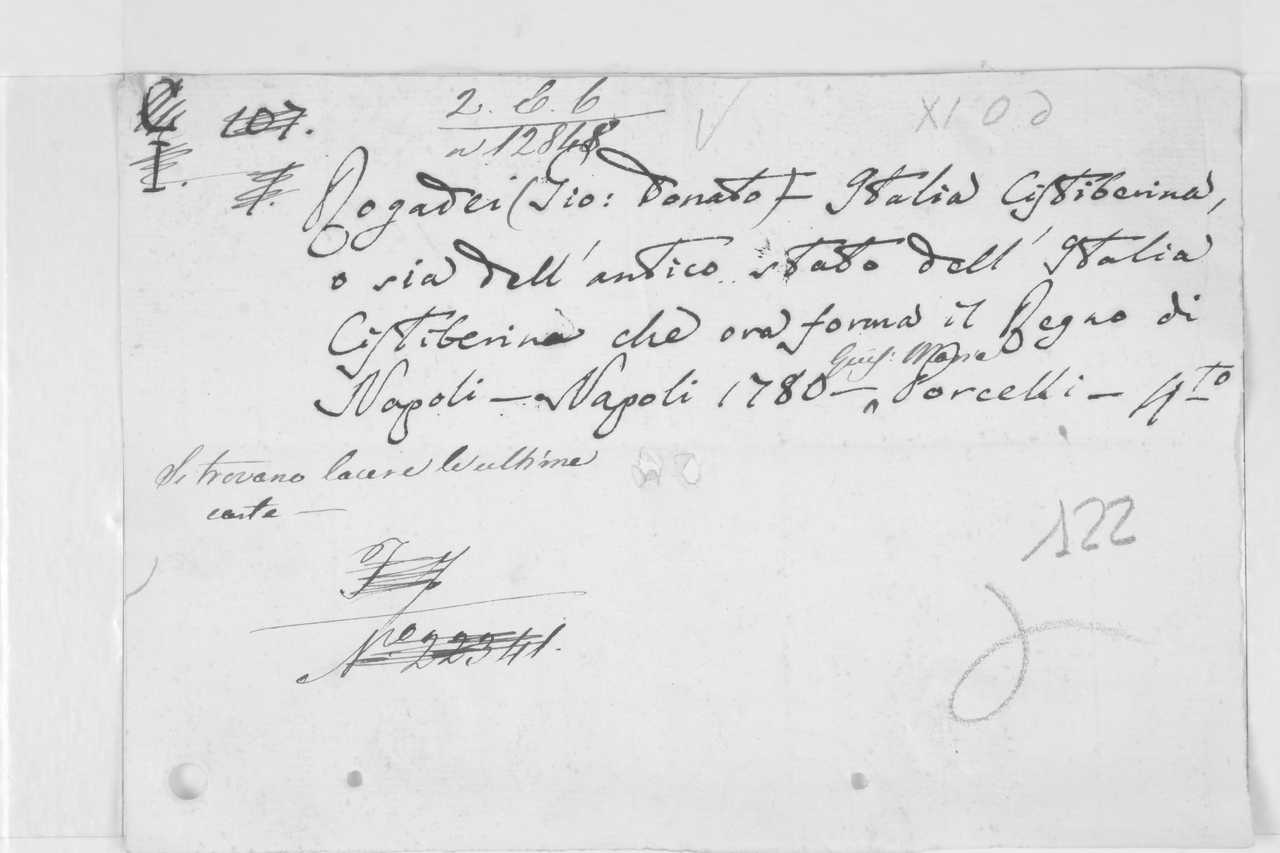 2. E. 6
107.
n 12848
I.
Rogadei (Gio: Donato) = Italia Cistiberina,
o sia dell' antico stato dell' Italia
Cistiberina che ora forma il Regno di
Gius: Maria
Napoli — Napoli 1780 — Porcelli — 4to
Si trovano lacere le ultime
carte —
122
No 22341.